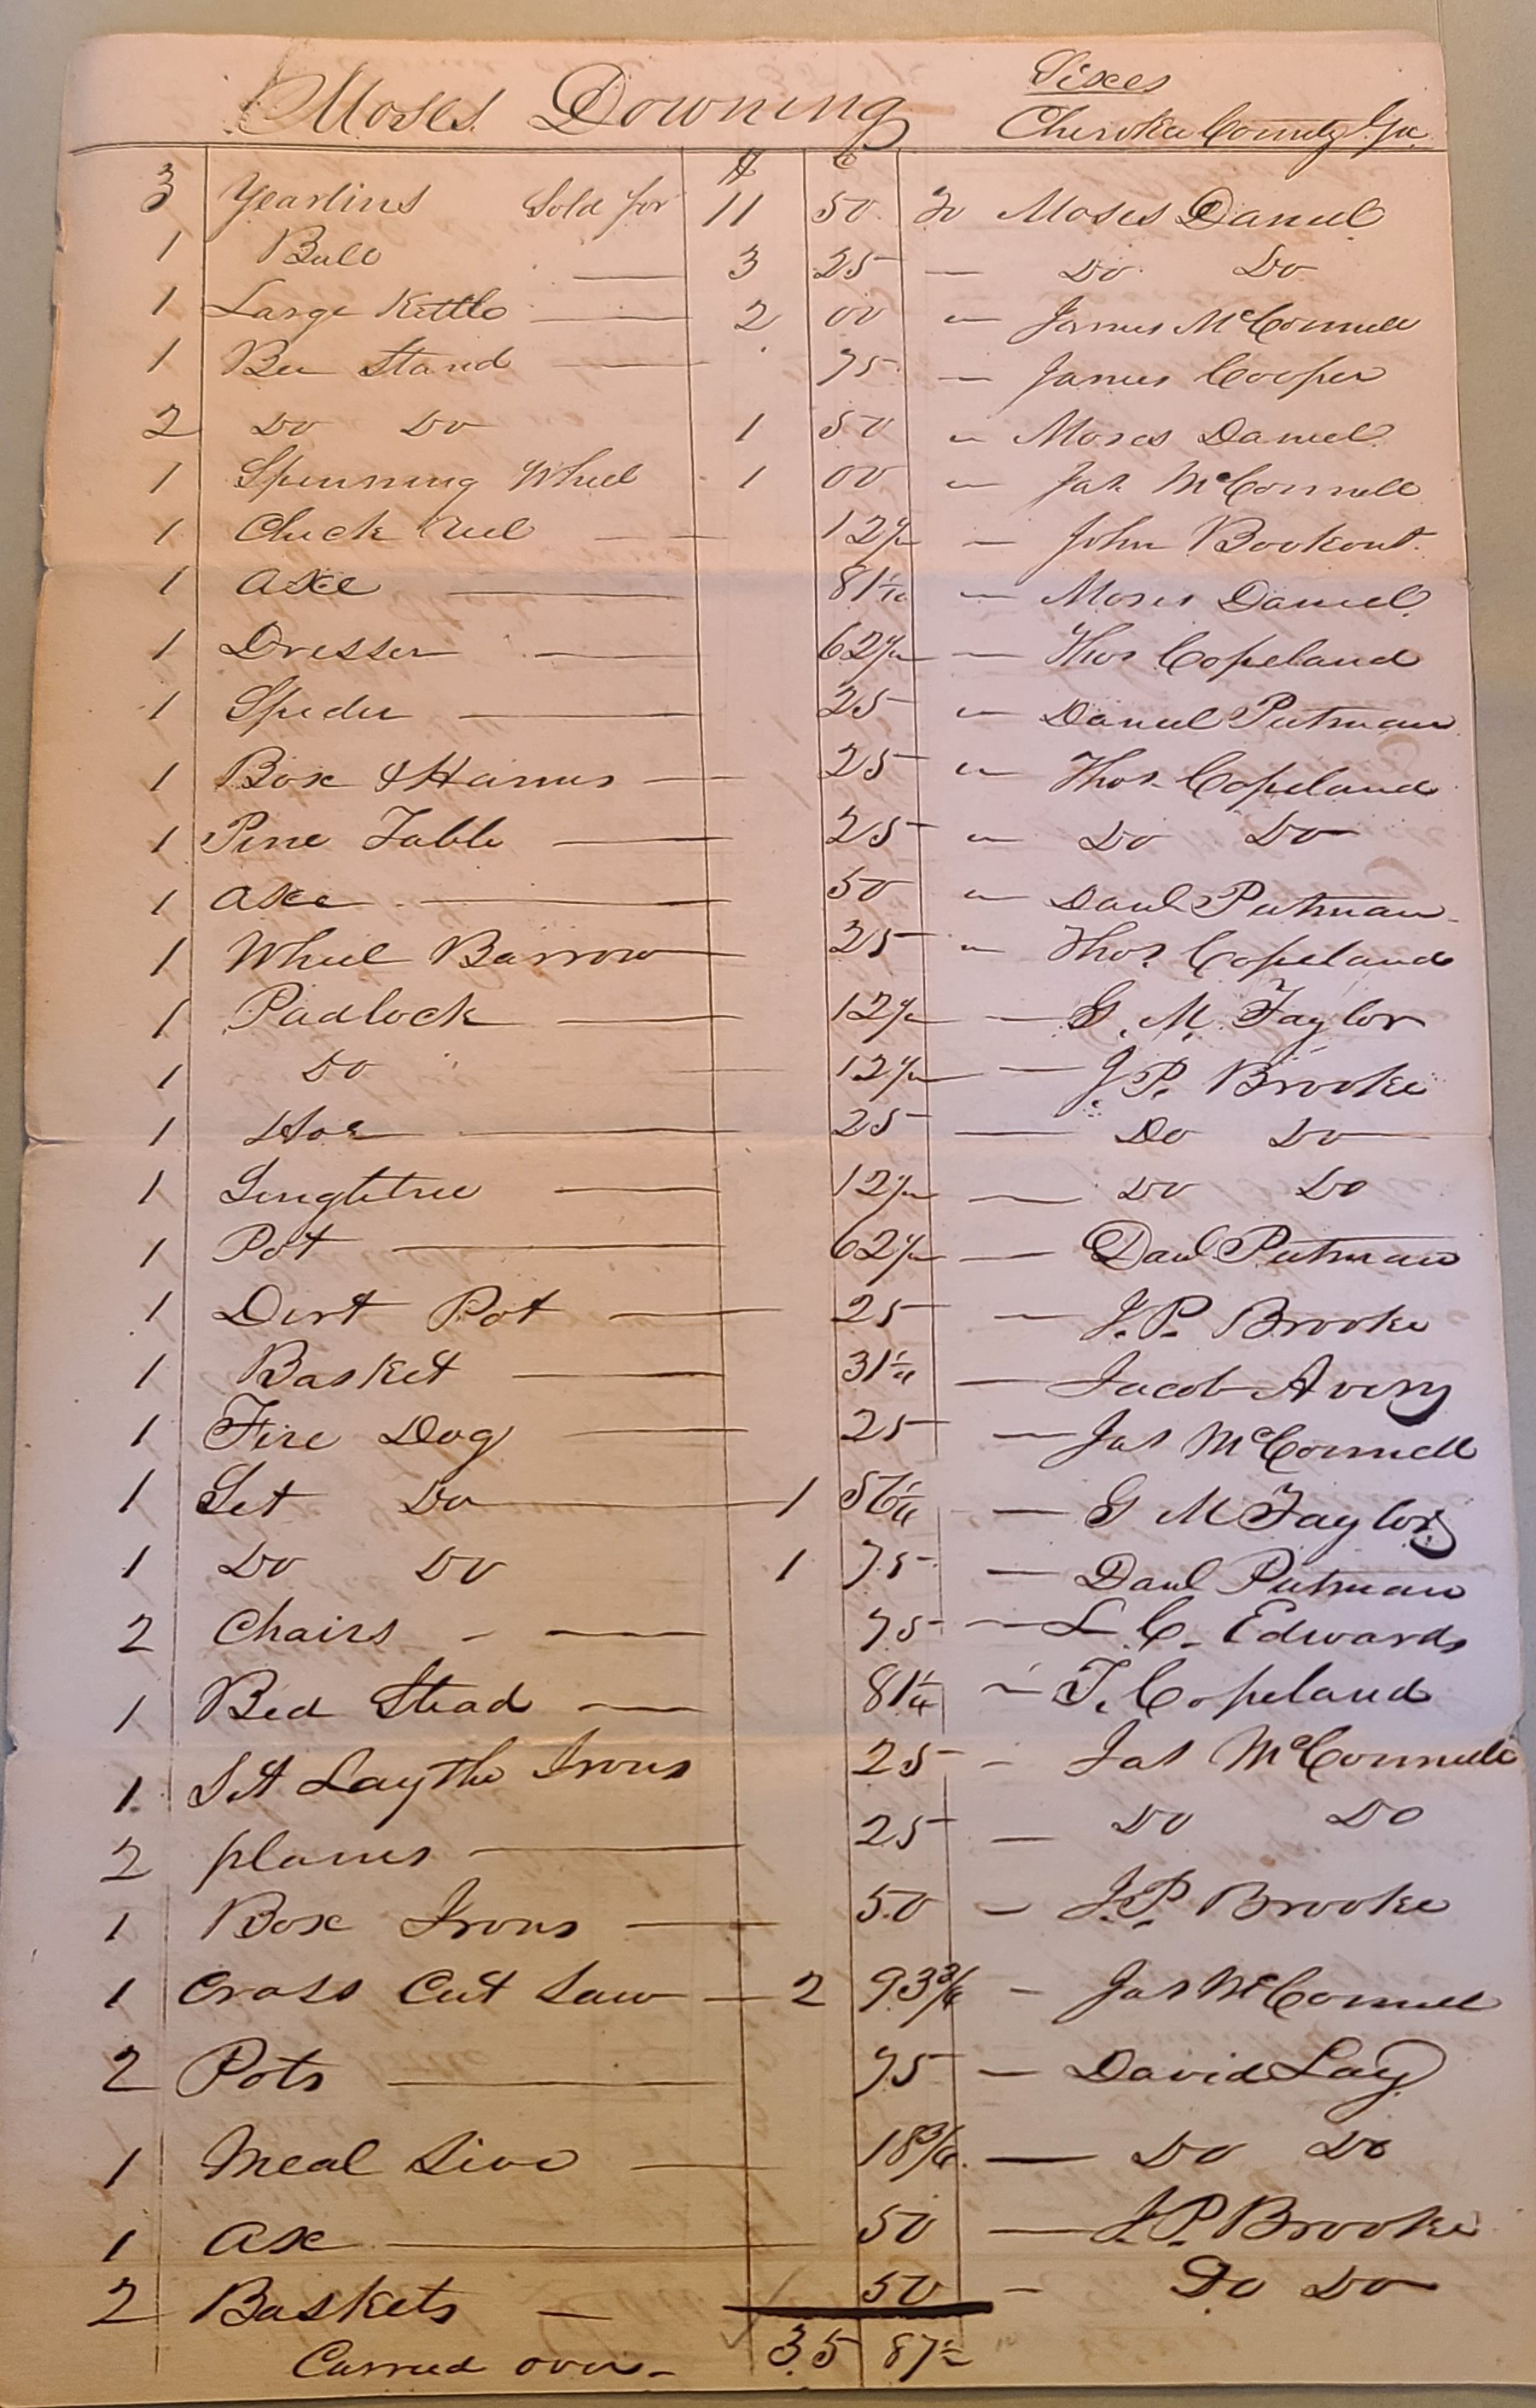 Sixes
Moses Downing Cherokee County Ga.
$ C
3 Yearlins Sold for 11 50 To Moses Daniel
1 Bull — 3 25 — Do Do
1 Large Kettle — 2 00 " James McConnell
1 Bee Stand — 75 — James Cooper
2 Do Do 1 50 " Moses Daniel
1 Spinning Wheel 1 00 " Jas McConnell
1 Check Reel — 12½ — John Bookout
1 Axe — 81¼ — Moses Daniel
1 Dresser — 62½ — Thos Copeland
1 Spider — 25 — Daniel Putman
1 Box & Harnes — 25 " Thos Copeland
1 Pine Table — 25 " Do Do
1 Axe — 50 " Danl Putman
1 Wheel Barrow — 25 " Thos. Copeland
1 Padlock — 12½ — G. M. Taylor
1 Do 12½ — J. P. Brooke
1 Hoe — 25 — Do Do
1 Singletree — 12½ — Do Do
1 Pot — 62½ — Danl Putman
1 Dirt Pot — 25 — J. P. Brooke
1 Basket — 31¼ — Jacob Avery
1 Fire Dog — 25 — Jas McConnell
1 Set Do — 1 56¼ — G M Taylor
1 Do Do 1 75 — Danl Putman
2 Chairs — 75 — L. C. Edwards
1 Bed Stead — 81¼ — T. Copeland
1 Set Laythe Irons 25 — Jas McConnell
2 planes — 25 — Do Do
1 Box Irons — 50 — J. P. Brooke
1 Cross Cut Saw — 2 93¾ — Jas McConnell
2 Pots — 75 — David Lay
1 Meal Sive — 18¾ — Do Do
1 Axe — 50 — J. P. Brooke
2 Baskets — 50 — Do Do
Carried over — 35 87½